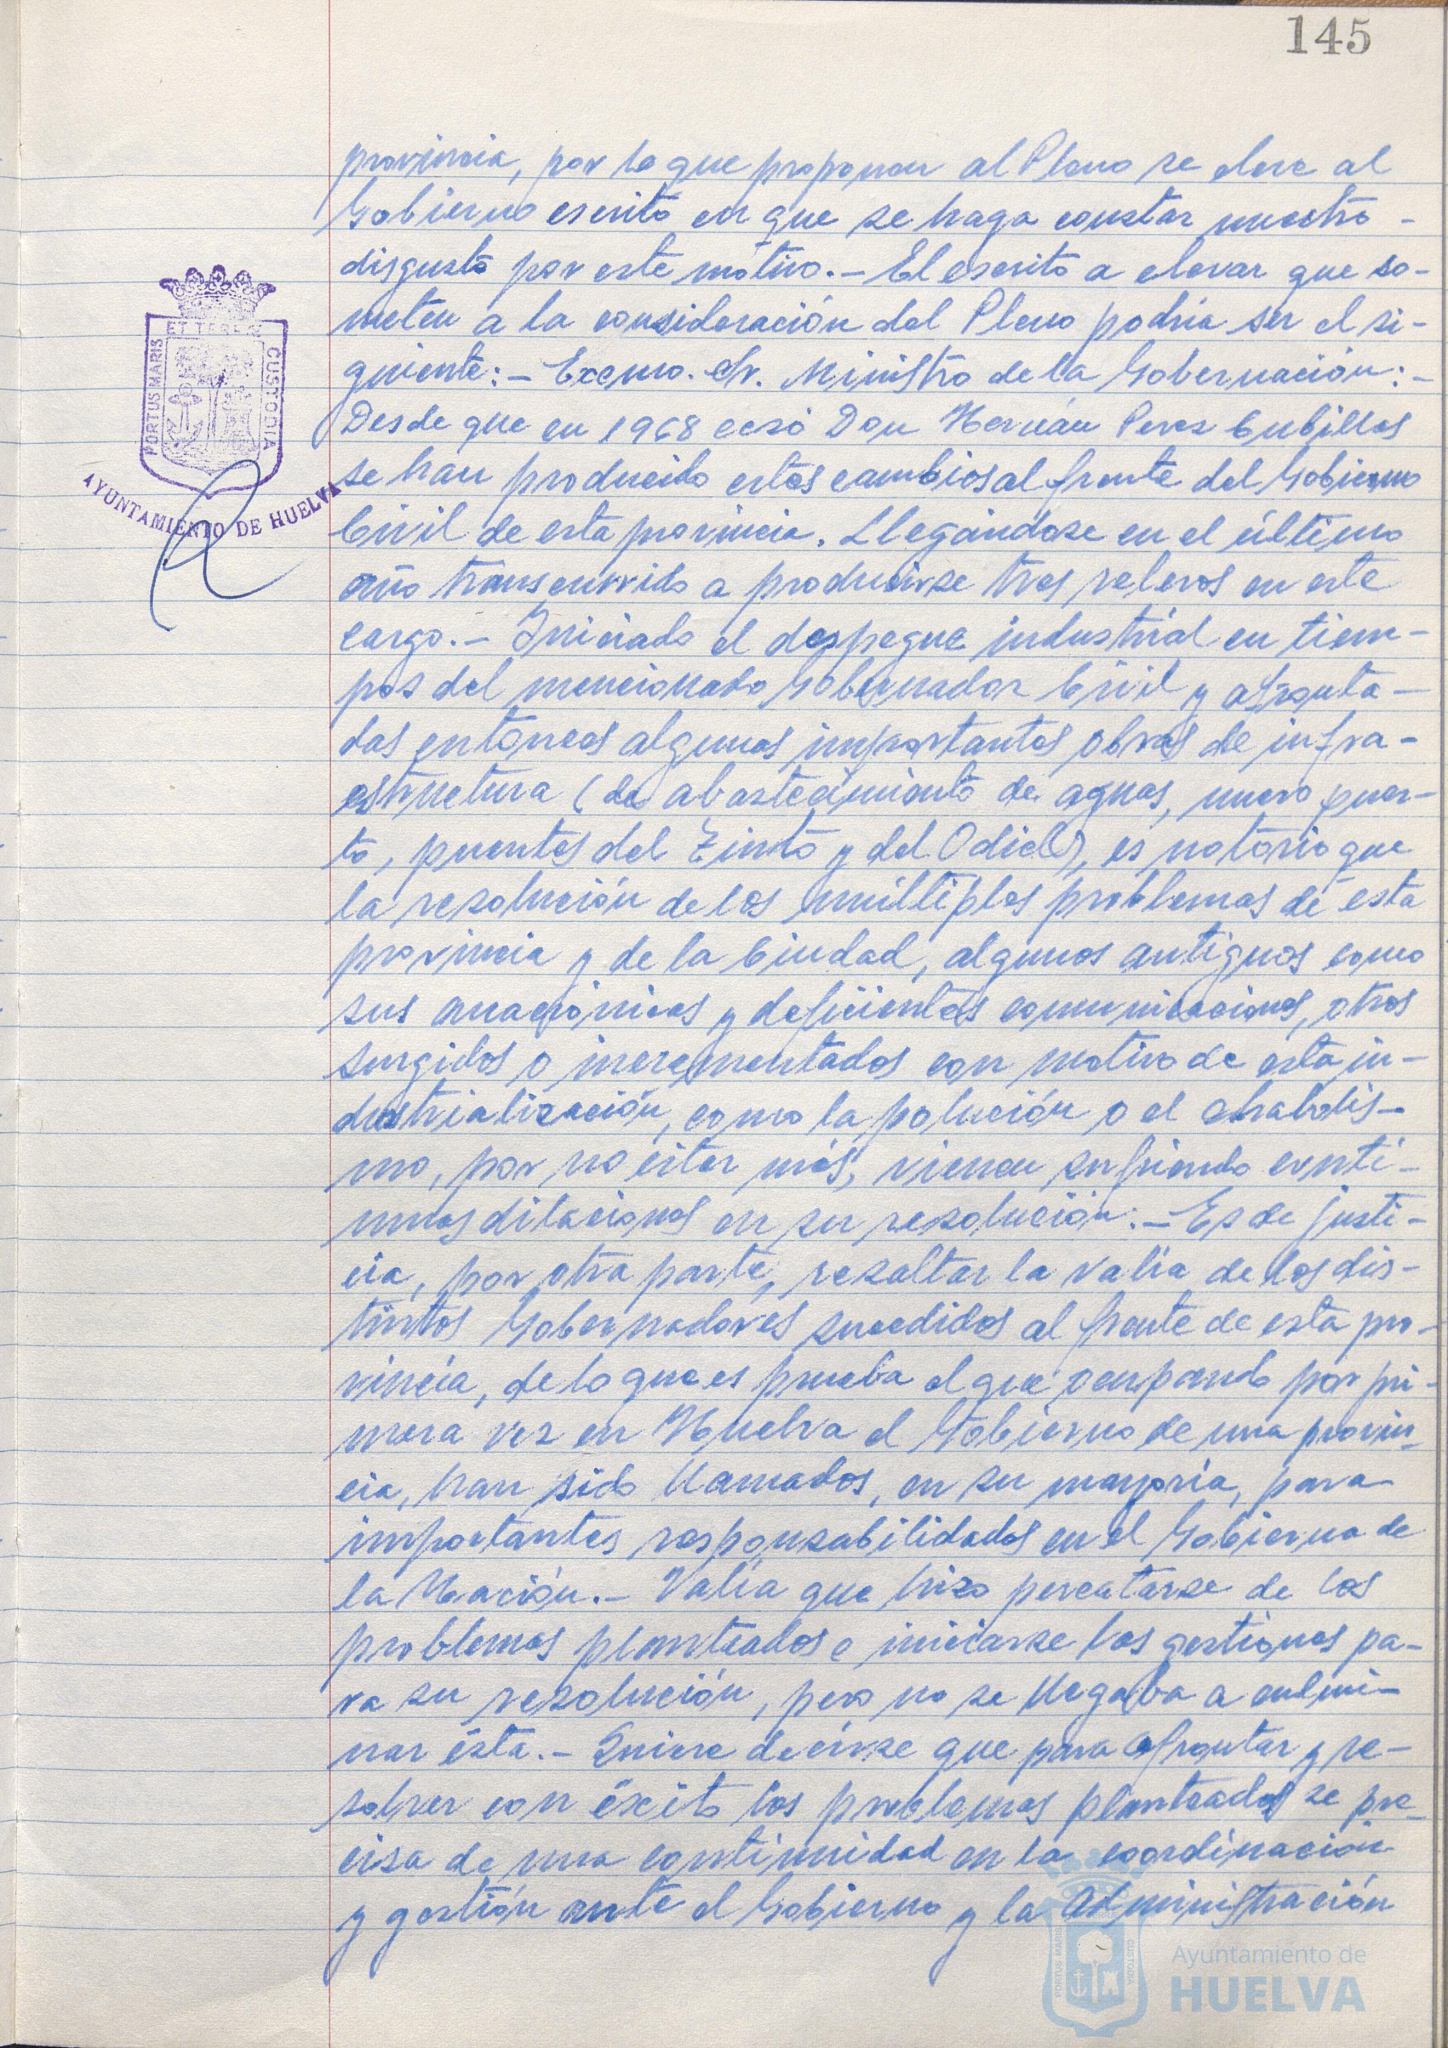 145
provincia, por lo que proponen al Pleno se eleve al
Gobierno escrito en que se haga constar nuestro
disgusto por este motivo.- El escrito a elevar que so-
meten a la consideración del Pleno podría ser el si-
guiente:- Excmo. Sr. Ministro de la Gobernación:-
Desde que en 1968 cesó Don Hernán Perez Cubillas
se han producido estos cambios al frente del Gobierno
Civil de esta provincia. Llegándose en el último
año transcurrido a producirse tres relevos en este
cargo.- Iniciado el despegue industrial en tiem-
pos del mencionado Gobernador Civil y afronta-
das entonces algunas importantes obras de infra-
estructura (de abastecimiento de aguas, nuevo puer-
to, puentes del Tinto y del Odiel), es notorio que
la resolución de los múltiples problemas de esta
provincia y de la Ciudad, algunos antiguos como
sus anacrónicas y deficientes comunicaciones, otros
surgidos o incrementados con motivo de esta in-
dustrialización, como la polución o el chabolis-
mo, por no citar más, vienen sufriendo contí-
nuas dilaciones en su resolución:- Es de justi-
cia, por otra parte, resaltar la valía de los dis-
tintos Gobernadores sucedidos al frente de esta pro-
vincia, de lo que es prueba el que ocupando por pri-
mera vez en Huelva el Gobierno de una provin-
cia, han sido llamados, en su mayoría, para
importantes responsabilidades en el Gobierno de
la Nación.- Valía que hizo percatarse de los
problemas planteados e iniciarse las gestiones pa-
ra su resolución, pero no se llegaba a culmi-
nar ésta.- Quiere decirse que para afrontar y re-
solver con éxito los problemas planteados se pre-
cisa de una continuidad en la coordinación
y gestión ante el Gobierno y la Administración
PORTUS MARIS
ET TERRAE
CUSTODIA
AYUNTAMIENTO DE HUELVA
PORTUS MARIS
CUSTODIA
Ayuntamiento de
HUELVA